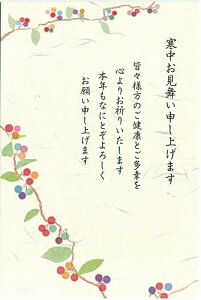 寒中お見舞い申し上げます
皆々様方のご健康とご多幸を
心よりお祈りいたします
本年もなにとぞよろしく
お願い申し上げます